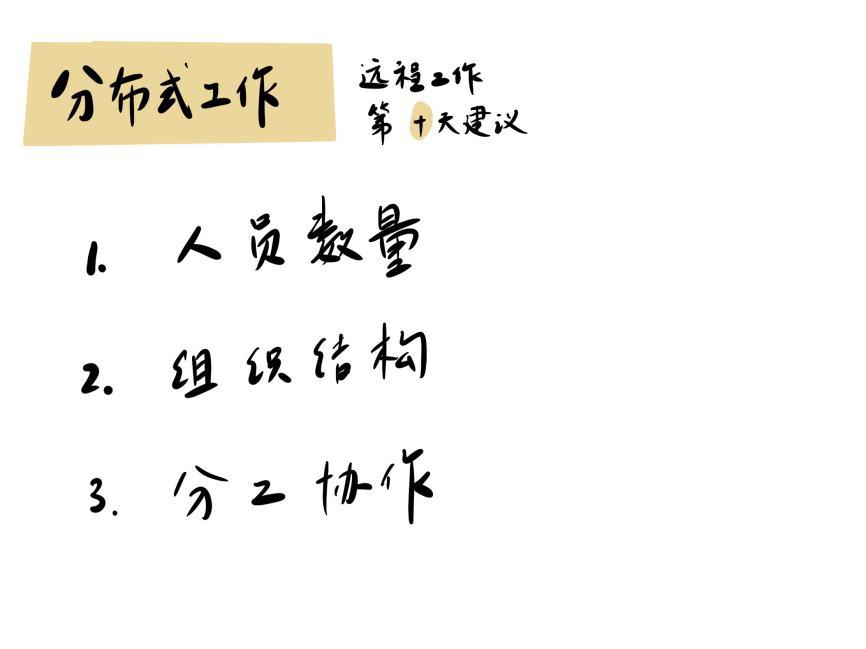 分布式工作
远程工作
第十天建议
1. 人员数量
2. 组织结构
3. 分工协作